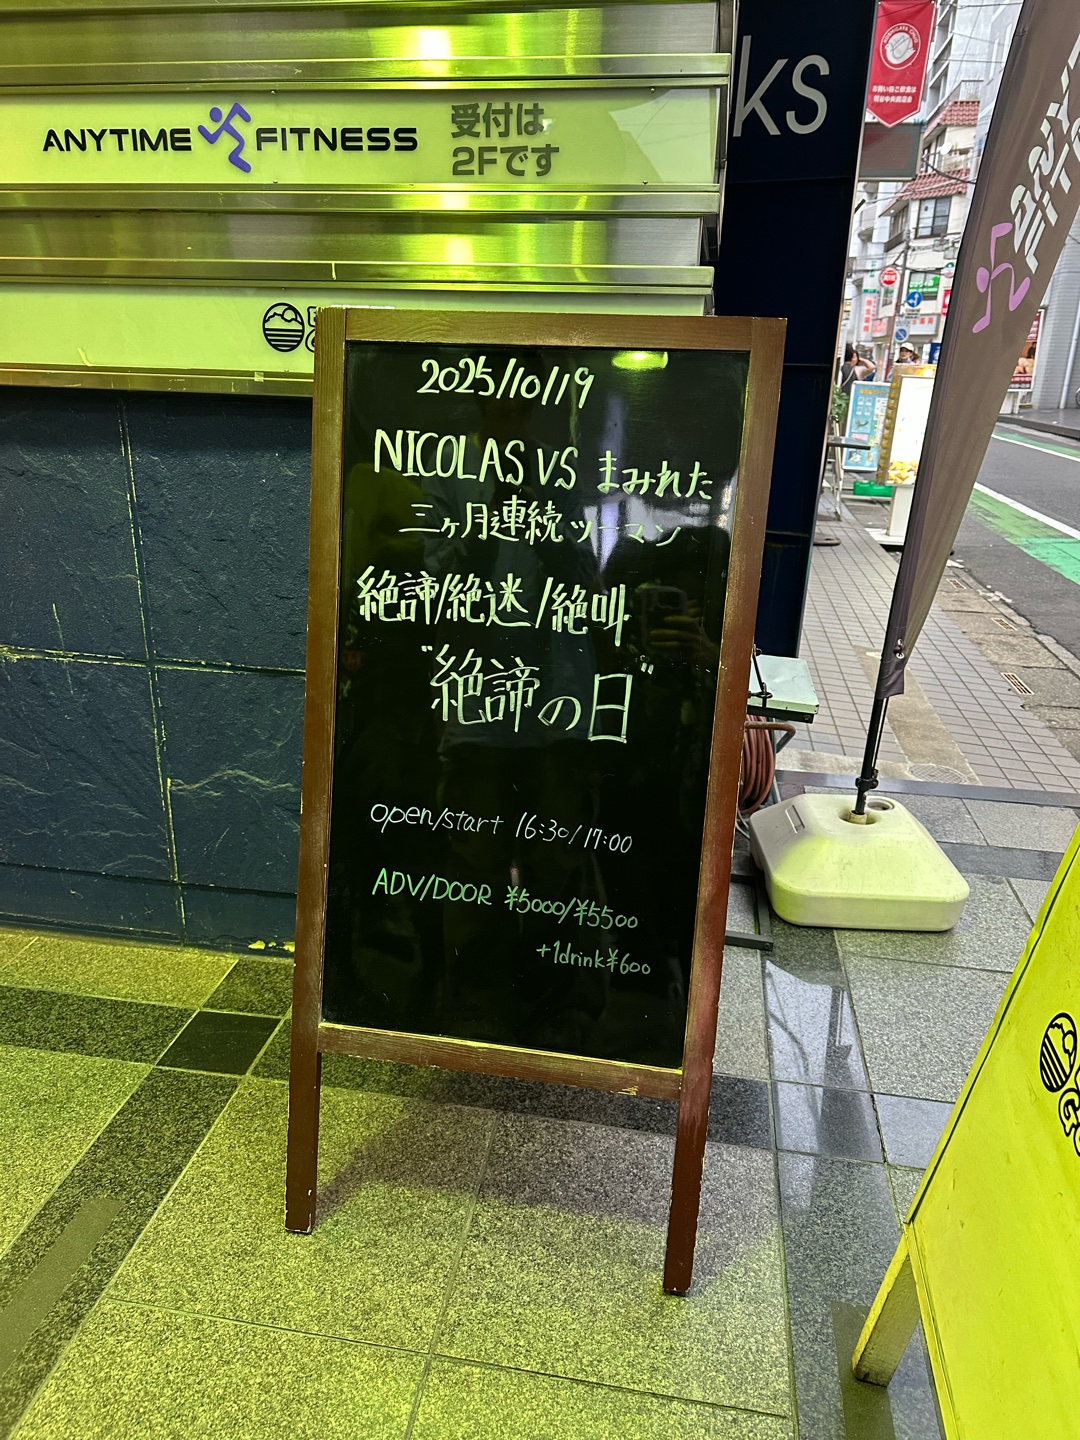 ANYTIME FITNESS
受付は
2Fです
ks
2025/10/19
NICOLAS VS まみれた
三ヶ月連続ツーマン
絶諦/絶迷/絶叫
"絶諦の日"
open/start 16:30/17:00
ADV/DOOR ¥5000/¥5500
+1drink¥600